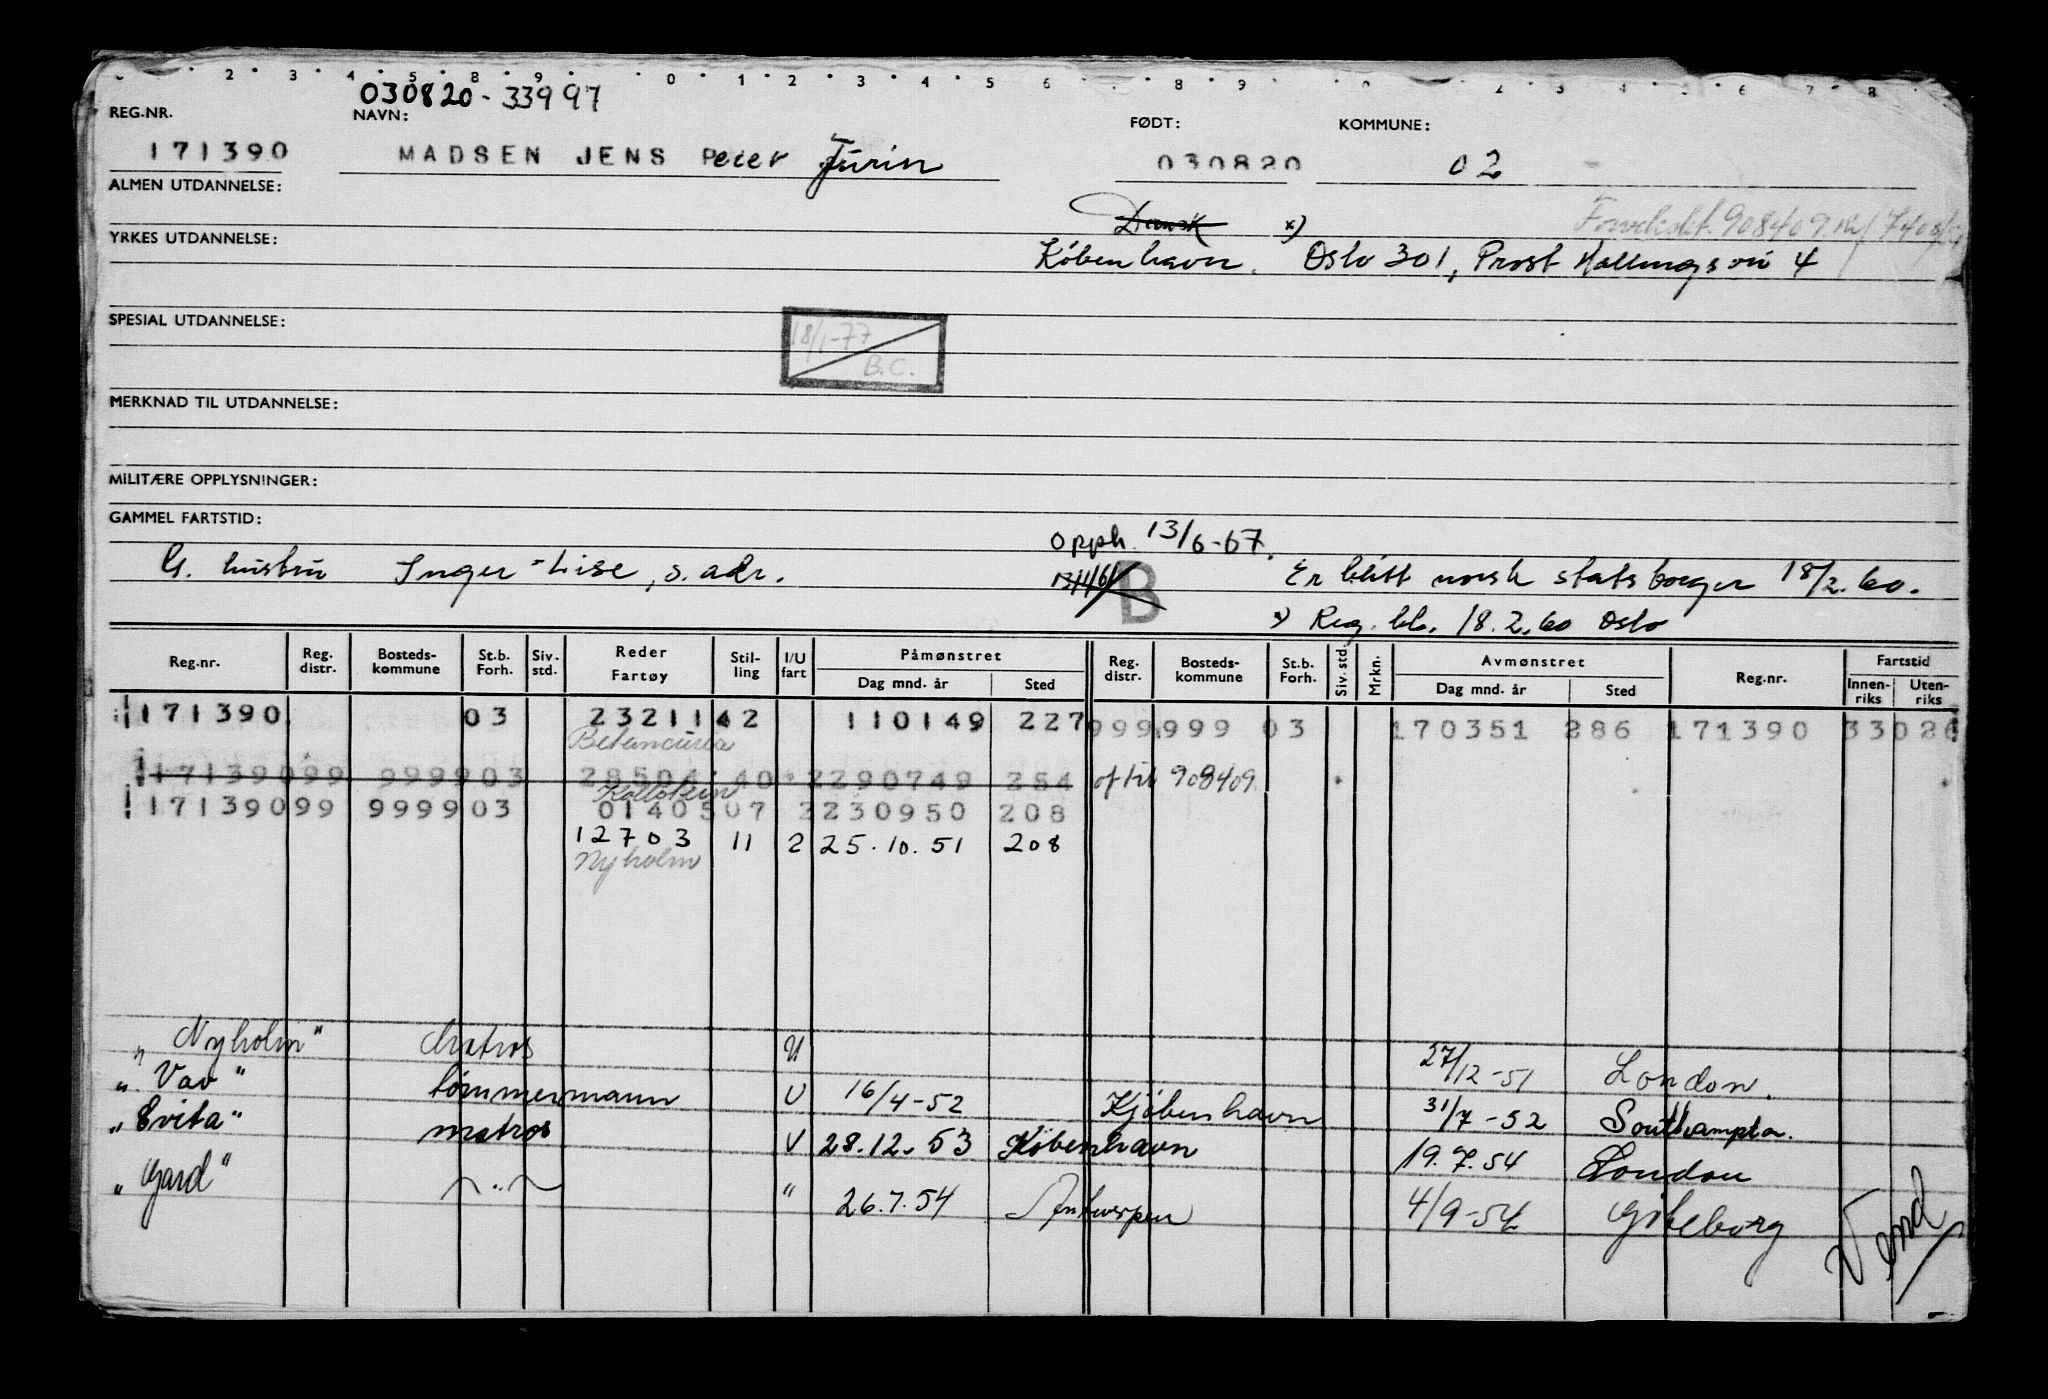 2 · 3 · 4 5 8 9 0 1 2 3 4 5 6 8 9 2 3 4 5 6 7 8
030820-33997
REG.NR. NAVN: FØDT: KOMMUNE:
171390 MADSEN JENS Peter Jurin 030820 02
ALMEN UTDANNELSE:
Dansk x)
YRKES UTDANNELSE: København. Oslo 301, Prost Hallings vei 4
SPESIAL UTDANNELSE:
18/1-77
B.C.
MERKNAD TIL UTDANNELSE:
MILITÆRE OPPLYSNINGER:
GAMMEL FARTSTID:
Opph. 13/6-67.
G. hustru Inger-Lise, s. adr. B Er blitt norsk statsborger 18/2.60.
x) Reg. bl. 18.2.60 Oslo
Reg.nr. Reg. distr. Bosteds-kommune St.b. Forh. Siv. std. Reder Fartøy Stil-ling I/U fart Påmønstret Dag mnd. år Sted Reg. distr. Bosteds-kommune St.b. Forh. Siv. std. Mrkn. Avmønstret Dag mnd. år Sted Reg.nr. Fartstid Innen-riks Uten-riks
171390 03 2321142 110149 227 999 999 03 170351 286 171390 33026
Betancuria
171390 99 9999 03 28504 40 2290749 284 of til 908409
Kollstein
171390 99 9999 03 0140507 3230950 208
12703 11 2 25.10.51 208
Nyholm
"Nyholm" Matros U 27/12-51 London.
"Vav" tømmermann U 16/4-52 Kjøbenhavn 31/7-52 Southampton.
"Evita" matros U 28.12.53 København 19.7.54 London
"Gard" ~"~ " 26.7.54 Antwerpen 4/9-54 Gøteborg
Vend